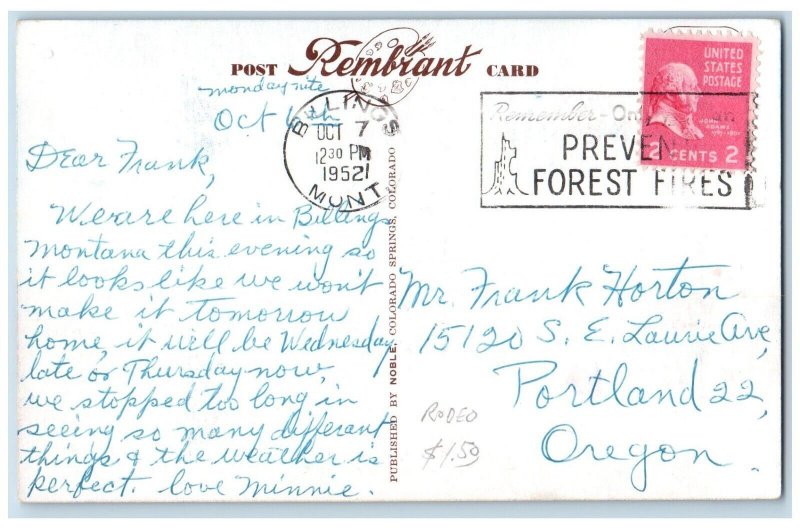 POST Rembrant CARD
monday nite
Oct 6th
BILLINGS
OCT 7
12 30 PM
1952
MONT
Remember - On
PREVEN
FOREST FIRES
UNITED
STATES
POSTAGE
JOHN
ADAMS
2 CENTS 2
Dear Frank,
We are here in Billings
Montana this evening so
it looks like we won't
make it tomorrow
home, it will be Wednesday
late or Thursday now,
we stopped too long in
seeing so many different
things & the weather is
perfect. love Minnie.
PUBLISHED BY NOBLE, COLORADO SPRINGS, COLORADO
Mr. Frank Horton
15120 S. E. Laurie Ave,
Portland 22,
Oregon.
RODEO
$1.50